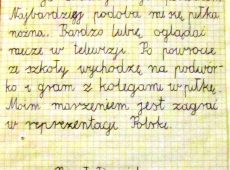 Najbardziej podoba mi się piłka
nożna. Bardzo lubię oglądać
mecze w telewizji. Po powrocie
ze szkoły wychodzę na podwór-
ko i gram z kolegami w piłkę.
Moim marzeniem jest zagrać
w reprezentacji Polski.